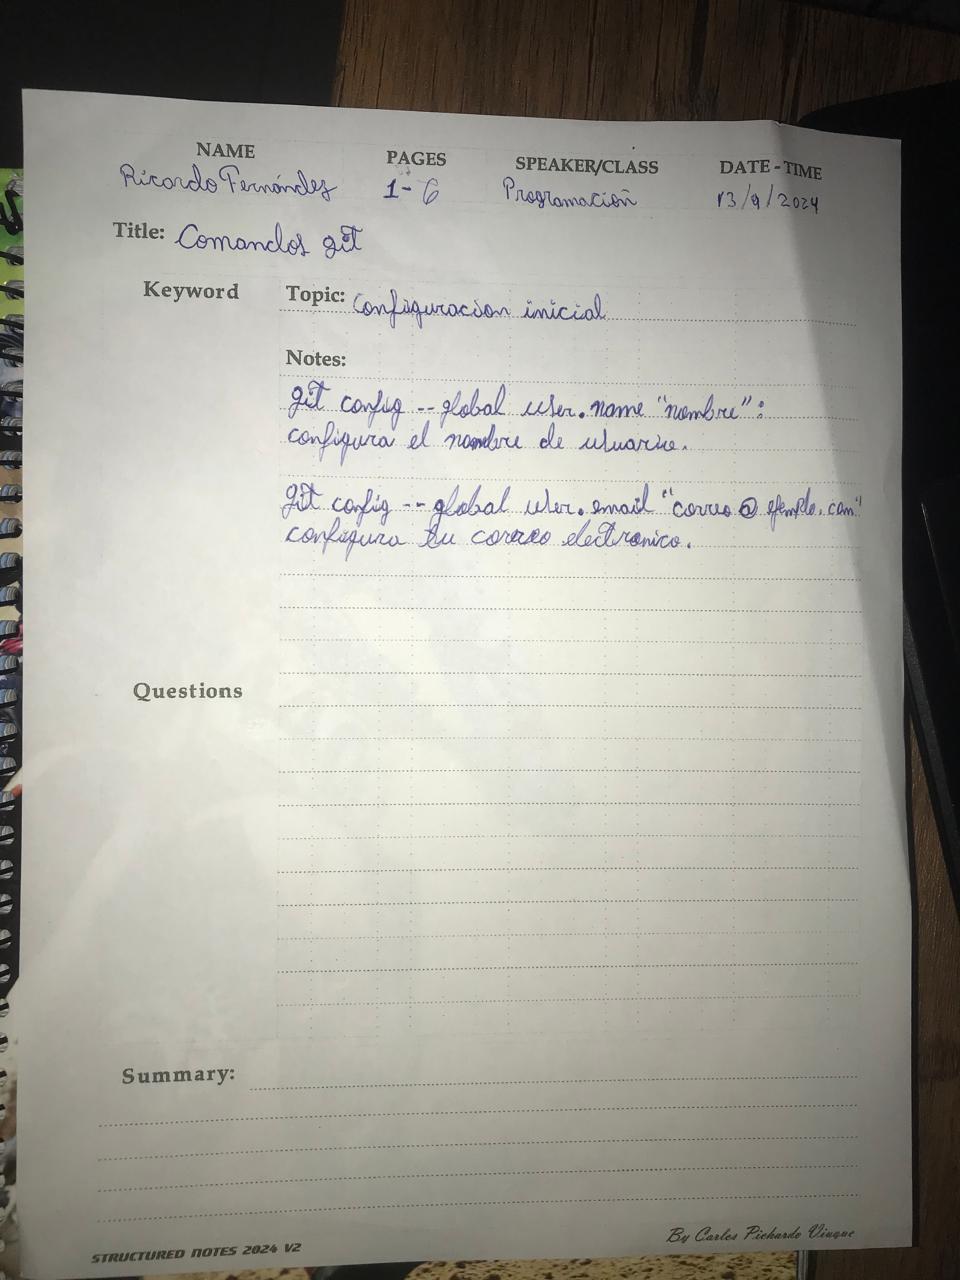 NAME PAGES SPEAKER/CLASS DATE-TIME
Ricardo Fernández 1-6 Programación 13/9/2024
Title: Comandos git
Keyword Topic: Configuracion inicial
Notes:
git config --global user.name "nombre":
configura el nombre de usuario.
git config --global user.email "correo@ejemplo.com"
configura tu correo electronico.
Questions
Summary:
STRUCTURED NOTES 2024 V2 By Carlos Pichardo Viuque